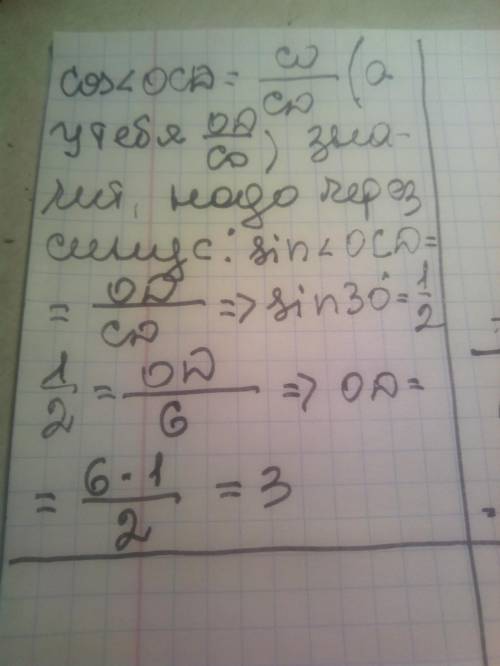 cos<OCD = CO/CD (а
у тебя OD/CO) зна-
чит, надо через
синус: sin<OCD =
= OD/CD => sin30° = 1/2
1/2 = OD/6 => OD =
= 6·1/2 = 3